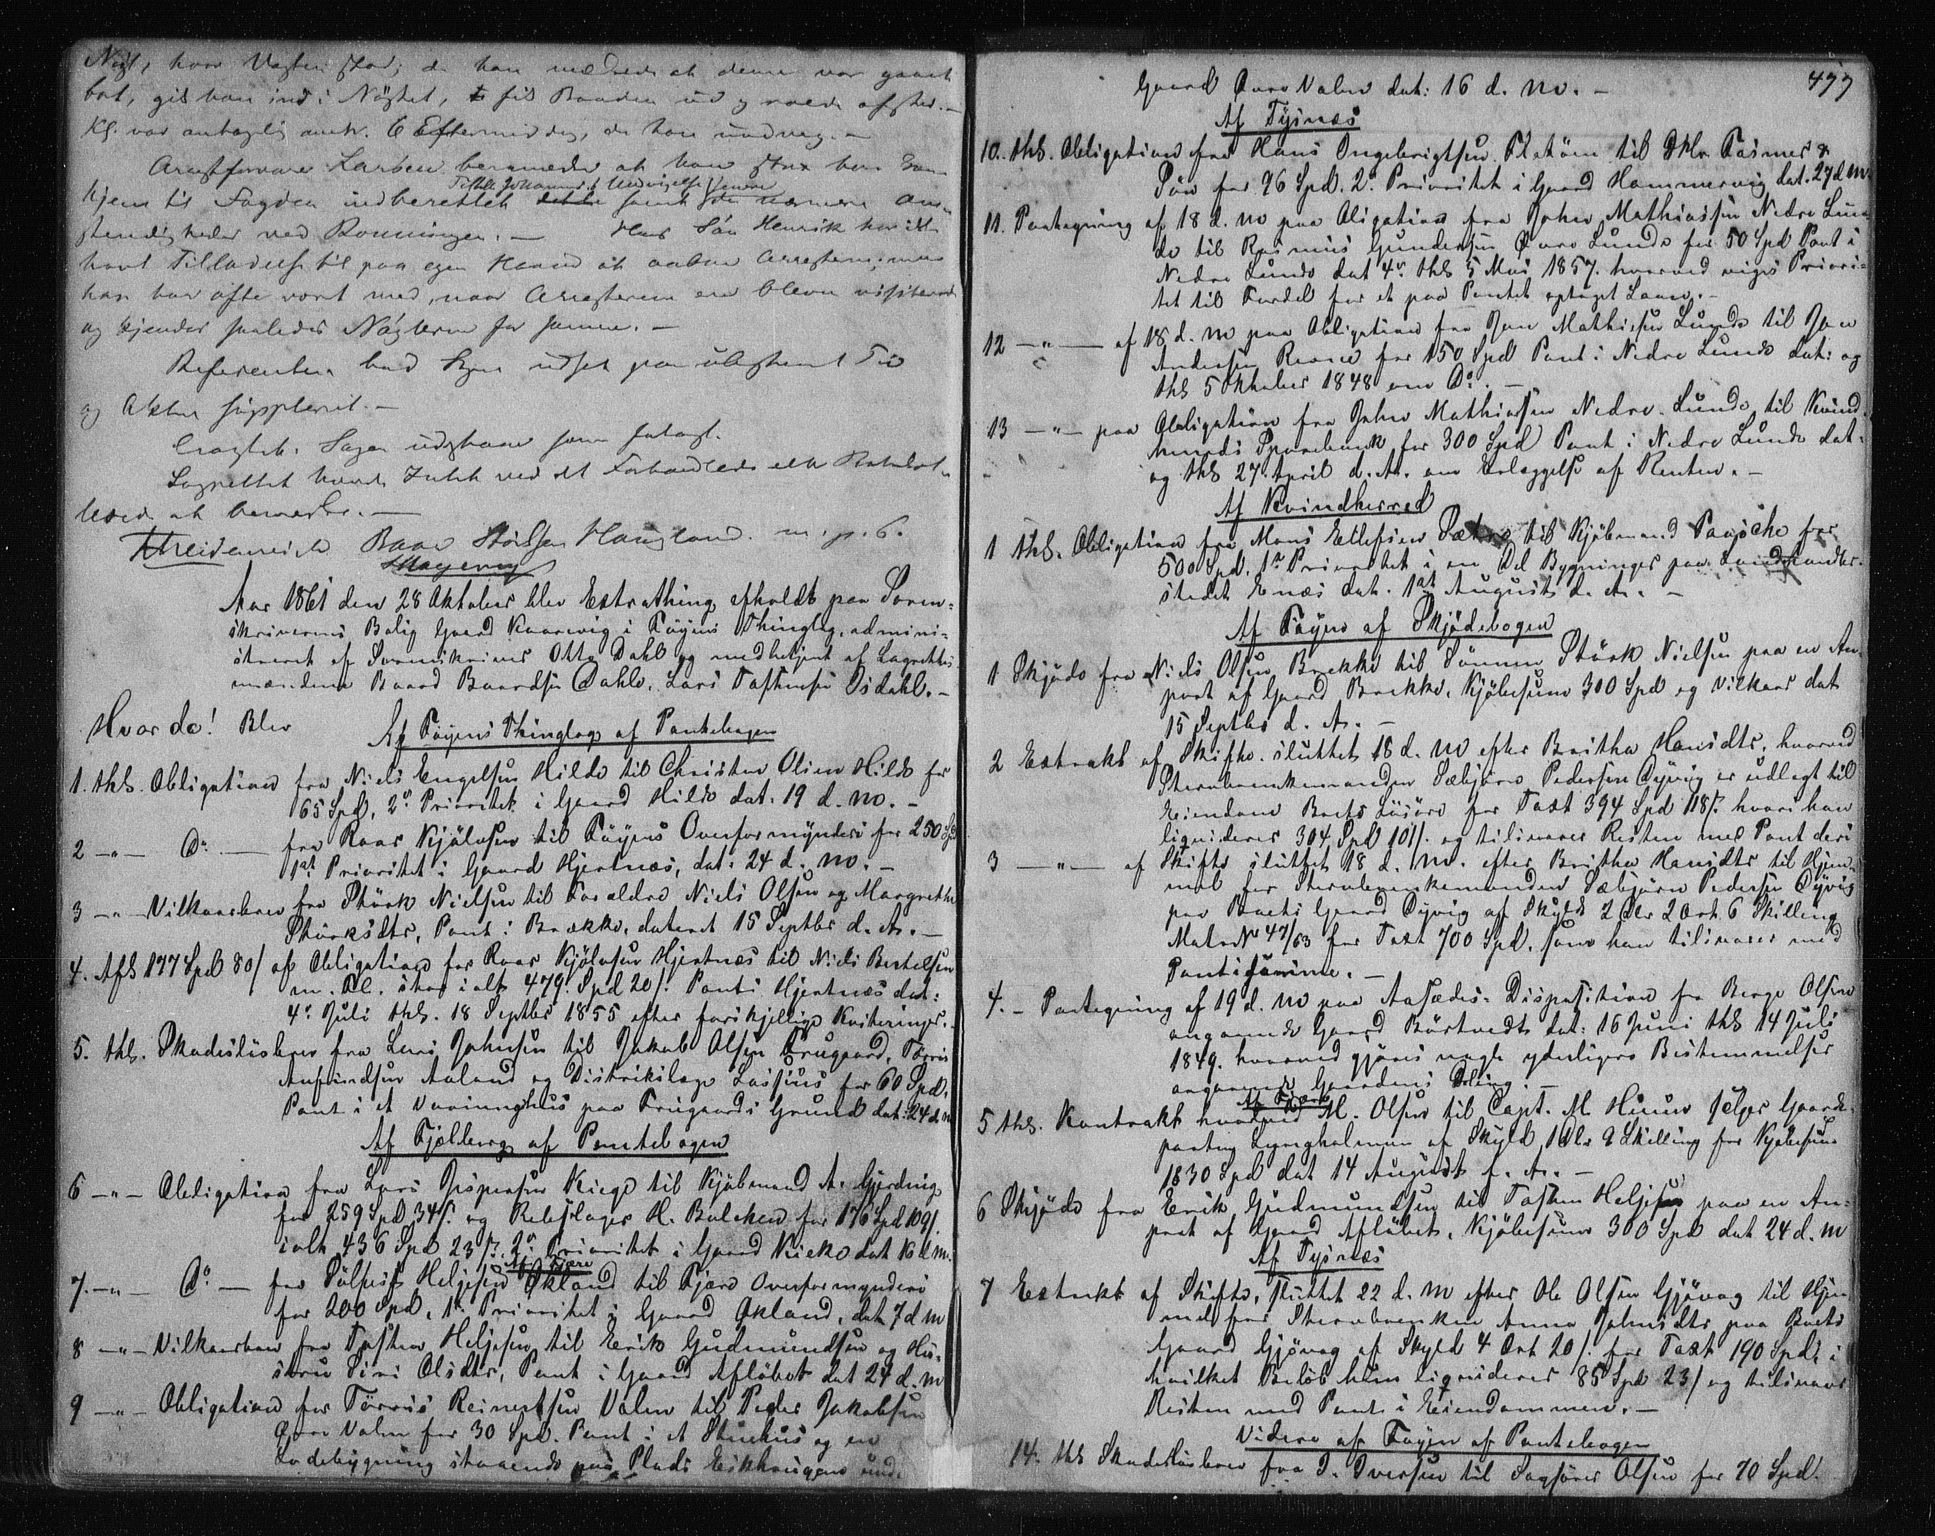 Nøst, hvor Vagten stod; da han mærkede at denne var gaaet
bort, gik han ind i Nøstet, fik Baaden ud og roede afsted. –
Kl. var antagelig omtr. 6 Eftermiddag, da han undveg. –
Arrestforvarer Larsen bemærkede at han strax han kom
hjem til Fogden indberettede Tittel Johannes's Undvigelse samt de nærmere om-
stændigheder ved Rømningen. – Hans Søn Henrik har ikke
havt Tilladelse til paa egen Haand at aabne Arresten; men
han har ofte været med, naar Arresterne ere blevne visiterede
og kjender saaledes Nøglerne for samme. –
Referenten bad Sagen udsat paa ubestemt Tid
og Akten suppleret. –
Eragtet. Sagen udstaar som forlangt.
Lagrettet havde Intet ved det Forhandlede eller
at bemærke. –
Baar Størksen Haugland. m. p. P.
Aar 1861 den 28 Oktober blev Extrathing afholdt paa Soren-
skriverens Bolig Gaard Kaarevig i Føyens Thinglag, admini-
streret af Sorenskriver Otto Dahl og medbetjent af Lagrettes-
mændene Baard Baardsen Dahle, Lars Tostensen Isdahl. –
Hvor da! Blev
Af Føyens Thinglag af Pantebogen
1. thl. Obligation fra Niels Engelsen Hilde til Christen Olsen Hilde for
65 Spd, 2n Prioritet i Gaard Hilde dat. 19 d. M. –
2 –"– Do – fra Roar Kjølvsen til Føyens Overformynderi for 250 Spd
1st Prioritet i Gaard Hjertnæs, dat. 24 d. M. –
3 –"– Vilkaarsbrev fra Størk Nielsen til Forældre Niels Olsen og Margrethe
Størksdtr, Pant i Brække, dateret 15 Septbr d. A. –
4. Afl 177 Spd 80/ af Obligation fra Roar Kjølvsen Hjertnæs til Niels Bertelsen
m. Fl. stor ialt 479 Spd 20/. Pant i Hjertnæs dat:
4de Juli thl. 18 Septbr 1855 efter forskjellige Kviteringer. –
5. thl. Skadesløsbrev fra Lars Johnsen til Jakob Olsen Trugaard,
Anfindsen Aaland og Distriktslæge Lassius for 60 Spd.
Pant i et Vaaningshus paa Truegaards Grund dat: 24 d. M
Af Fjelberg af Pantebogen
6 –"– Obligation fra Lars Jespersen til Kjøbmand A. Gjerding
for 259 Spd 34/. og Rebslager H. Balchen for 176 Spd 109/.
ialt 436 Spd 23/. 2n Prioritet i Gaard dat 16 d. M.
Af Fjære
7. –"– Do – fra Helgesen Økland til Fjære Overformynderi
for 200 Spd, 1n Prioritet i Gaard Økland, dat 7 d M
8 –"– Vilkaarsbrev fra Tosten Heljesen til Erik Gudmundsen og Hu-
stru Siri Olsdtr, Pant i Gaard Afløbet dat 24 d. M
9 –"– Obligation fra Tørris Reinertsen Valen til Peder Jakobsen
Øvre Valen for 30 Spd. Pant i et Stuehus og en
Ladebygning staaende paa Plads Eikhaugene under
477
Gaard Øvre Valen dat: 16 d. M. –
Af Tysnæs
10. thl. Obligation fra Hans Ongebrigtsen Flatøen til Fasmer &
Søn for 96 Spd. 2n Prioritet i Gaard Hammervig dat. 27 d M.
11. Pantegning af 18 d. M paa Obligation fra John Mathiassen Nedre Lun-
de til Rasmus Gundersen Øvre Lunde for 50 Spd Pant i
Nedre Lunde dat 4de thl 5 Mai 1857. hvorved viges Priori-
tet til Fordel for et paa Pantet optaget Laan. –
12 –"– af 18 d. M paa Obligation fra Jan Mathiesen Lunde til Jan
Andersen for 150 Spd Pant i Nedre Lunde dat: og
thl 5 Oktober 1848 om Do. –
13 –"– paa Obligation fra John Mathiassen Nedre Lunde til Kvind-
herreds Sparebank for 300 Spd Pant i Nedre Lunde dat
og thl 27 April d. A. om Erlæggelse af Renten. –
Af Kvindherred
1 thl. Obligation fra Mons Ellefsen Sætre til Kjøbmand Paasche for
500 Spd. 1n Prioritet i en Del Bygninger paa Landhandler-
stedet Enæs dat. 1st August d. A. –
Af Føyen af Skjødebogen
1 Skjøde fra Niels Olsen Brække til Sønnen Størk Nielsen paa en An-
part af Gaard Brække, Kjøbesum 300 Spd og Vilkaar dat
15 Septbr d. A. –
2 Extrakt af Skifte sluttet 18 d. M efter Britha Hansdtr, hvorved
Sterbenkemanden Sæbjørn Pedersen Dyvig er udlagt til
Eiendom Boets Løsøre for Taxt 394 Spd 118/. hvori han
liqviderer 304 Spd 101/. og tilsvarer Resten med Pant deri
3 –"– af Skifte sluttet 18 d. M. efter Britha Hansdtr til Hjem-
mel for Sterbenkemanden Sæbjørn Pedersen Dyvig
paa Boets Gaard Dyvig af Skyld 2 Dlr 2 Ort 6 Skilling
Matr No 47/53 for Taxt 700 Spd. som han tilsvarer med
Pant i samme. –
4. – Pantegning af 19 d. M paa Aasædes-Disposition fra Berge Olsen
angaaende Gaard Børtvedt dat: 16 Juni thl 14 Juli
1849. hvorved gjøres nogle yderligere Bestemmelser
angaaende Gaardens Deling. –
Af Fjære
5 thl. Kontrakt hvorved M. Olsen til Capt. M. Huun sælger Gaard-
parten Lyngholmen af Skyld 1 Dlr 9 Skilling for Kjøbesum
1830 Spd dat 14 August f. A. –
6 Skjøde fra Erik Gudmundsen til Tosten Heljesen paa en An-
part af Gaard Afløbet, Kjøbesum 300 Spd dat 24 d. M
Af Tysnæs
7 Extrakt af Skifte, sluttet 22 d. M efter Ole Olsen Gjøvog til Hjem-
mel for Sterbenken Anna Johnsdtr paa Boets
Gaard Gjøvog af Skyld 4 Ort 20/. for Taxt 190 Spd, i
hvilket Beløb hun liqviderer 85 Spd 23/ og tilsvarer
Resten med Pant i Eiendommen. –
Videre af Føyen af Pantebogen
14. thl Skadesløsbrev fra I. Iversen til Sagfører Olsen for 70 Spd.